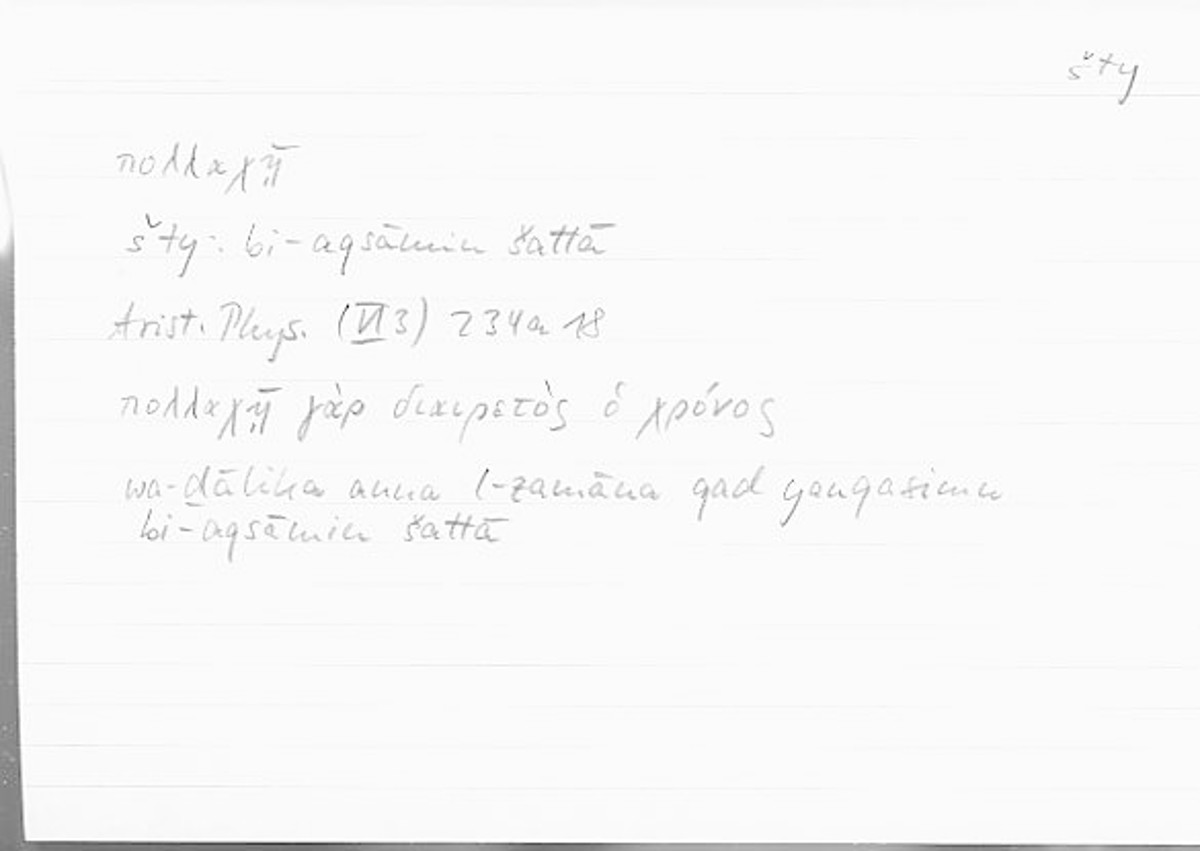 šty
πολλαχῇ
šty: bi-aqsāmin šattā
Arist. Phys. (VI 3) 234a 18
πολλαχῇ γὰρ διαιρετὸς ὁ χρόνος
wa-ḏālika anna l-zamāna qad yanqasimu
bi-aqsāmin šattā